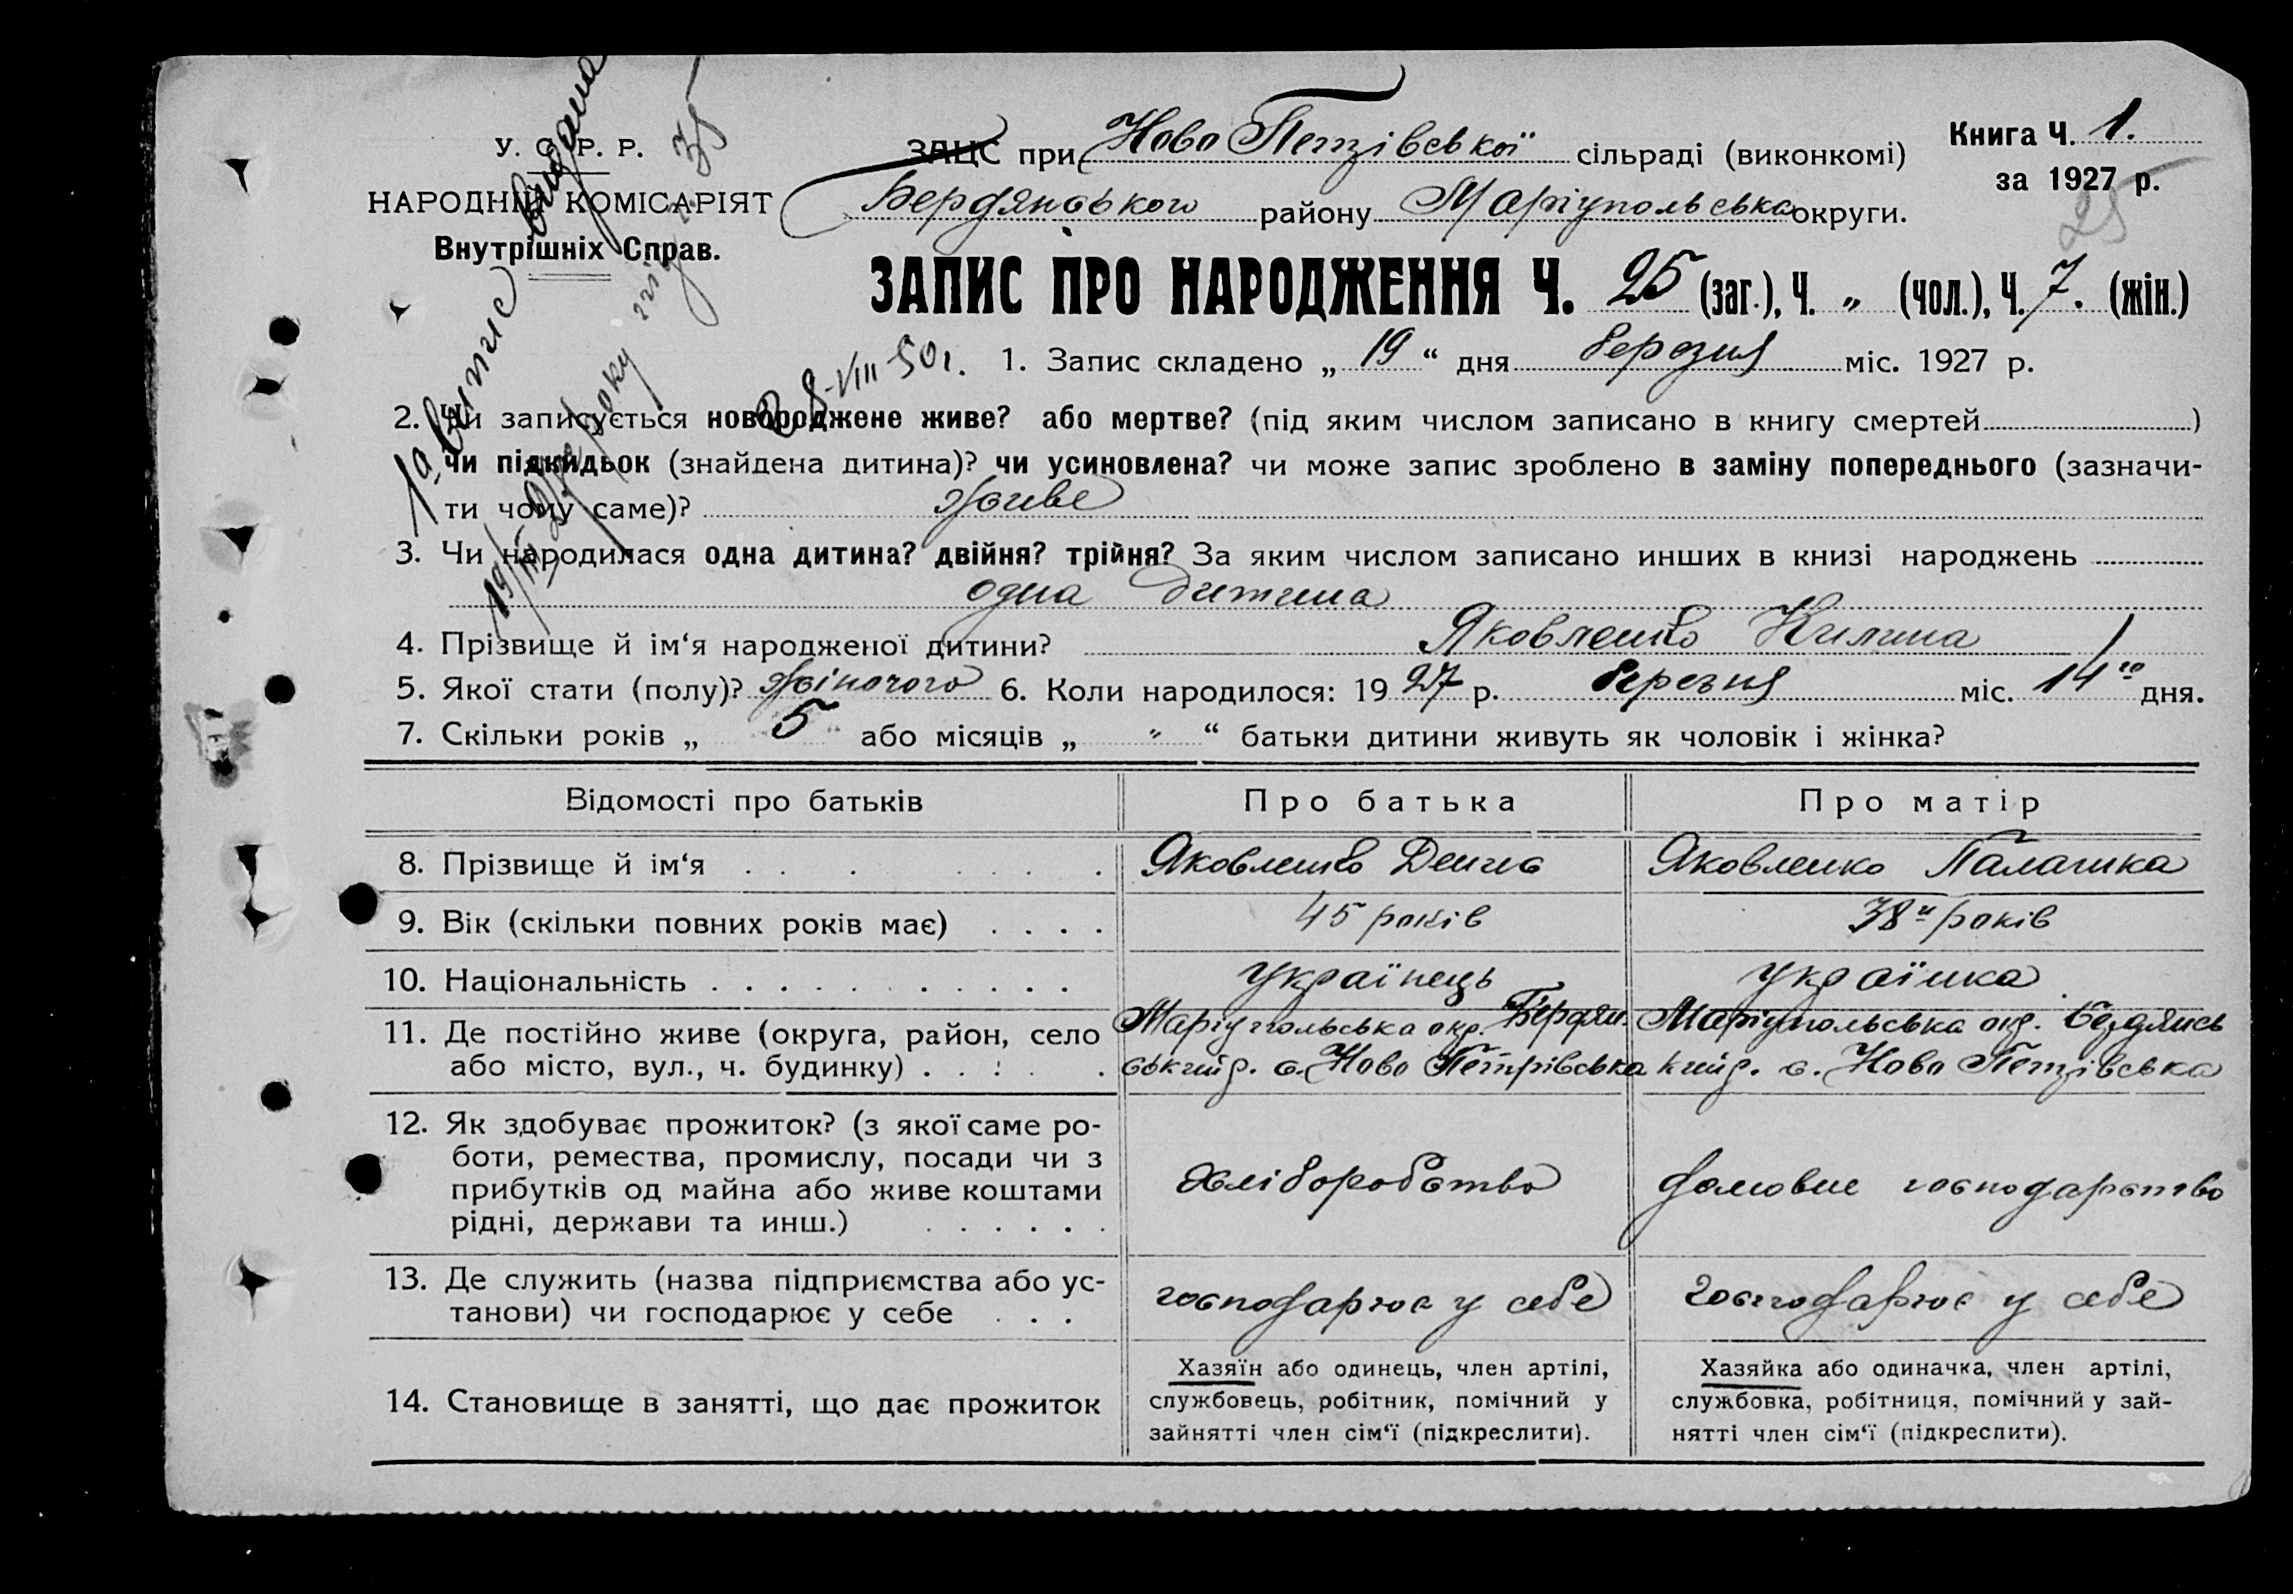 У. С. Р. Р.
НАРОДНІЙ КОМІСАРІЯТ
Внутрішніх Справ.
1а випис видана
8-VIII-50г.
ЗАЦС при Ново Петрівської сільраді (виконкомі)
Бердянського району Маріупольська округи.
Книга Ч. 1.
за 1927 р.
25
ЗАПИС ПРО НАРОДЖЕННЯ Ч. 25 (заг.), Ч. „ (чол.), Ч. 7. (жін.)
1. Запис складено „ 19 “ дня березня міс. 1927 р.
2. Чи записується новороджене живе? або мертве? (під яким числом записано в книгу смертей )
чи підкидьок (знайдена дитина)? чи усиновлена? чи може запис зроблено в заміну попереднього (зазначи-
ти чому саме)? живе
3. Чи народилася одна дитина? двійня? трійня? За яким числом записано инших в книзі народжень
одна дитина
4. Прізвище й ім‘я народженої дитини? Яковленко Килина
5. Якої стати (полу)? жіночого 6. Коли народилося: 1927 р. березня міс. 14го дня.
7. Скільки років „ 5 “ або місяців „ “ “ батьки дитини живуть як чоловік і жінка?
Відомості про батьків Про батька Про матір
8. Прізвище й ім‘я Яковленко Денис Яковленко Палашка
9. Вік (скільки повних років має) 45 років 38 років
10. Національність українець українка
11. Де постійно живе (округа, район, село Маріупольська окр. Бердян- Маріупольська окр. Бердянсь
або місто, вул., ч. будинку) ський р. с. Ново Петрівська кий р. с. Ново Петрівська
12. Як здобуває прожиток? (з якої саме ро-
боти, ремества, промислу, посади чи з
прибутків од майна або живе коштами
рідні, держави та инш.)
хліборобство домовне господарство
13. Де служить (назва підприємства або ус-
танови) чи господарює у себе
господарює у себе господарює у себе
14. Становище в занятті, що дає прожиток
Хазяїн або одинець, член артілі,
службовець, робітник, помічний у
зайнятті член сім‘ї (підкреслити).
Хазяйка або одиначка, член артілі,
службовка, робітниця, помічний у зай-
нятті член сім‘ї (підкреслити).